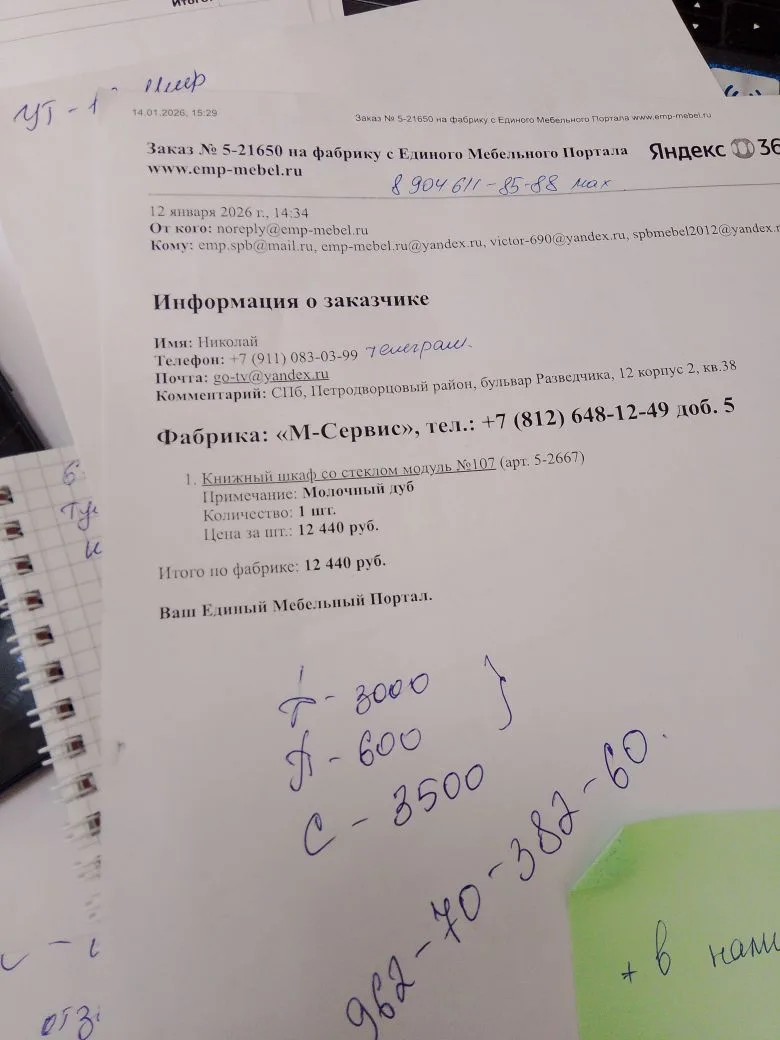 14.01.2026, 15:29
Заказ № 5-21650 на фабрику с Единого Мебельного Портала www.emp-mebel.ru
Заказ № 5-21650 на фабрику с Единого Мебельного Портала
www.emp-mebel.ru
Яндекс 36
8 904 611-85-88 мах
12 января 2026 г., 14:34
От кого: noreply@emp-mebel.ru
Кому: emp.spb@mail.ru, emp-mebel.ru@yandex.ru, victor-690@yandex.ru, spbmebel2012@yandex.r
Информация о заказчике
Имя: Николай
Телефон: +7 (911) 083-03-99 телеграм.
Почта: go-tv@yandex.ru
Комментарий: СПб, Петродворцовый район, бульвар Разведчика, 12 корпус 2, кв.38
Фабрика: «М-Сервис», тел.: +7 (812) 648-12-49 доб. 5
1. Книжный шкаф со стеклом модуль №107 (арт. 5-2667)
Примечание: Молочный дуб
Количество: 1 шт.
Цена за шт.: 12 440 руб.
Итого по фабрике: 12 440 руб.
Ваш Единый Мебельный Портал.
Т - 3000
П - 600
С - 3500
962-70-382-60.
+ в нали
отз